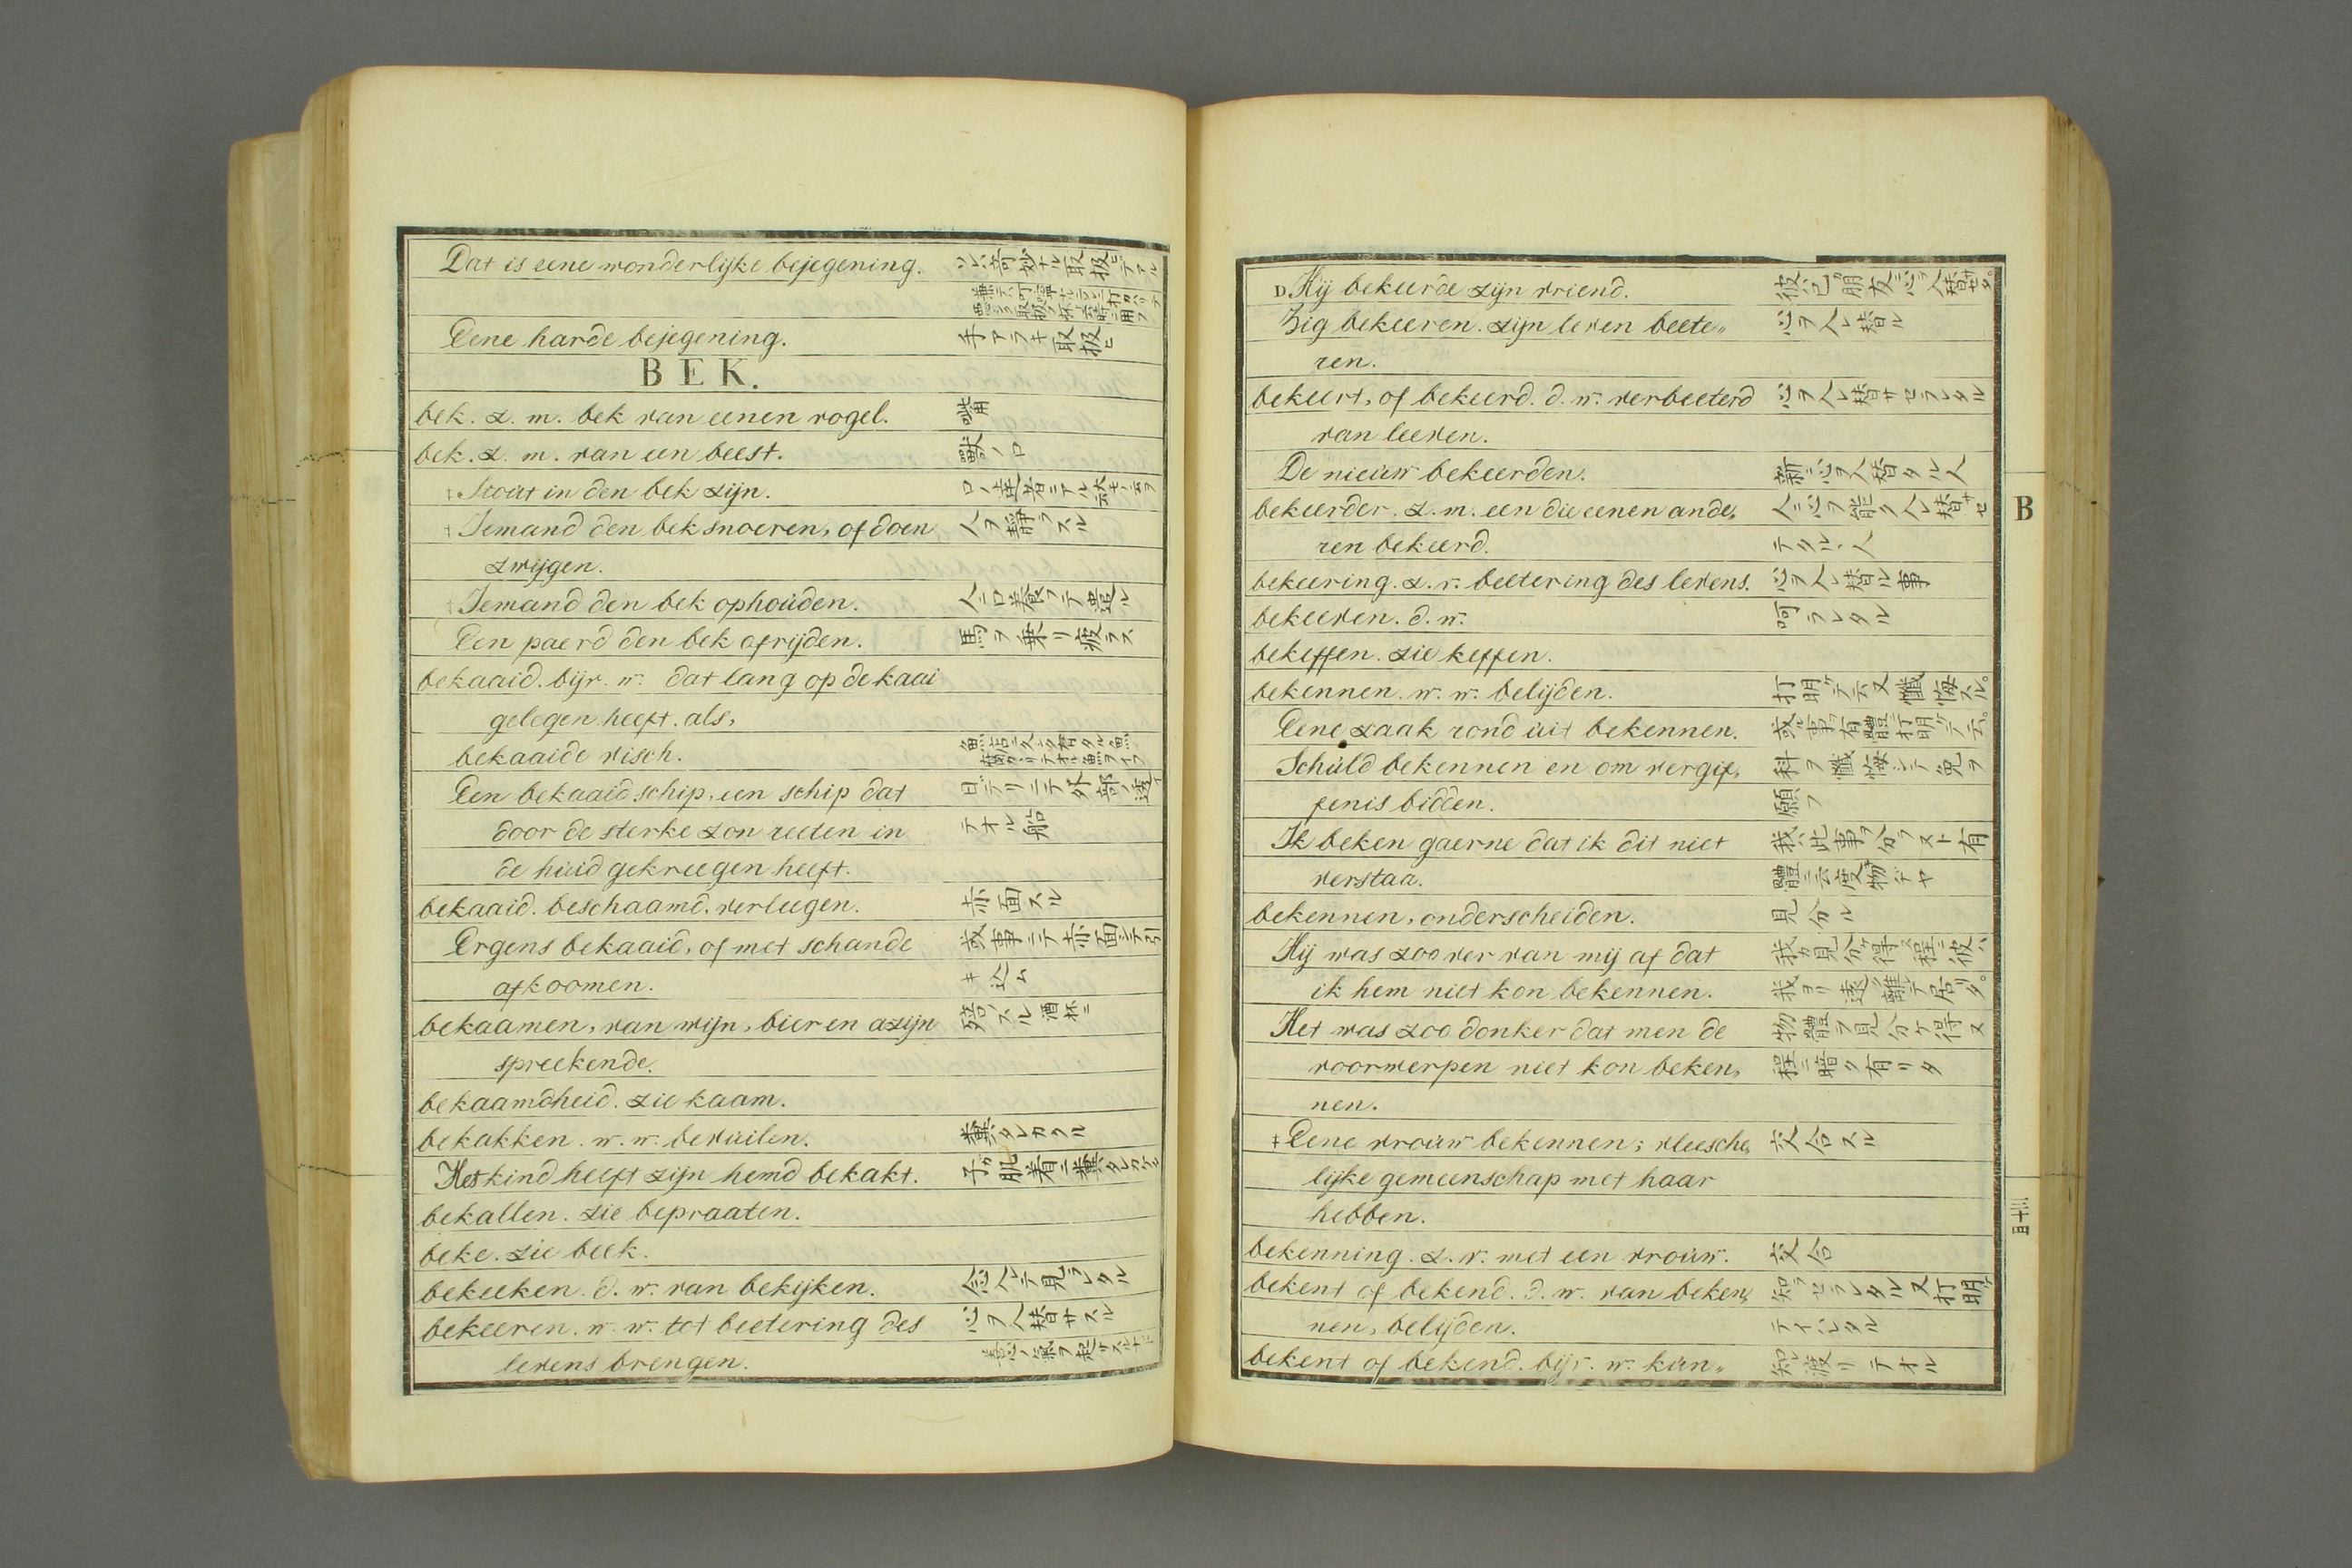 Dat is eene wonderlijke bejegening. ソレハ奇妙ナル取扱ヒデアル
Eene harde bejegening. 手アラキ取扱ヒ
BEK.
bek. z. m. bek van eenen vogel. 嘴
bek. z. m. van een beest. 獸ノ口
‡ Stout in den bek zijn. 口ノ達者ニアル
‡ Iemand den bek snoeren, of doen 人ヲ靜ラスル
zwijgen.
‡ Iemand den bek ophouden.
Een paerd den bek afrijden. 馬ヲ乗リ疲ラス
bekaaid. bijv. w. dat lang op de kaai
gelegen heeft. als,
bekaaide visch.
Een bekaaid schip, een schip dat 日デリニテ外部ノ透イ
door de sterke zon reeten in テオル船
de huid gekreegen heeft.
bekaaid. beschaamd. verleegen. 赤面スル
Ergens bekaaid, of met schande 或事ニテ赤面シテ引
afkoomen. キ込ム
bekaamen, van wijn, bier en azijn スル 酒杯ニ
spreekende.
bekaamdheid. zie kaam.
bekakken. w. w. bevuilen. 糞タレカクル
Het kind heeft zijn hemd bekakt. 子ガ肌着ニ糞タレカケタ
bekallen. zie bepraaten.
beke. zie beek.
bekeeken. d. w. van bekijken. 念入レテ見ラレタル
bekeeren. w. w. tot beetering des 心ヲ入替サスル
levens brengen.
D. Hij bekeerde zijn vriend. 彼ハ己ガ朋友ニ心ヲ入替サセタ。
Zig bekeeren. zijn leven beete„ 心ヲ入レ替ル
ren.
bekeert, of bekeerd. d. w. verbeeterd 心ヲ入レ替サセラレタル
van leeven.
De nieuw bekeerden. 新ニ心ヲ入替タル人
bekeerder. z. m. een die eenen ande„ 人ニ心ヲ能ク入レ替サセ
ren bekeerd. テクルヽ人
bekeering. z. v. beetering des levens. 心ヲ入レ替ル事
bekeeven. d. w. 呵ラレタル
bekeffen. zie keffen.
bekennen. w. w. belijden. 打明ケテ云又懺悔スル。
Eene zaak rond uit bekennen. 或ル事ヲ有體ニ打明ケテ云。
Schuld bekennen en om vergif„ 科ヲ懺悔シテ免ヲ
fenis bidden. 願フ
Ik beken gaerne dat ik dit niet 我ハ此事ヲ分ラヌト有
verstaa. 體ニ云度物ヂヤ
bekennen, onderscheiden. 見分ル
Hij was zoo ver van mij af dat 我ガ見分ケ得ヌ程ニ彼ハ
ik hem niet kon bekennen. 我ヨリ遠ク離テ居リタ。
Het was zoo donker dat men de 物體ヲ見分ケ得ヌ
voorwerpen niet kon beken„ 程ニ暗ク有リタ
nen.
‡ Eene vrouw bekennen; vleesche„ 交合スル
lijke gemeenschap met haar
hebben.
bekenning. z. v. met een vrouw. 交合
bekent of bekend. d. w. van beken„ 知ラセラレタル又打明ケ
nen, belijden. テイハレタル
bekent of bekend. bijv. w. kun„ 知渡リテオル
B